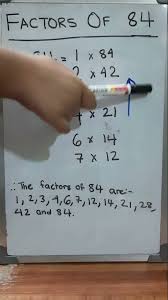 FACTORS OF 84
84 = 1 × 84
2 × 42
4 × 21
6 × 14
7 × 12
∴ The factors of 84 are:-
1, 2, 3, 4, 6, 7, 12, 14, 21, 28,
42 and 84.